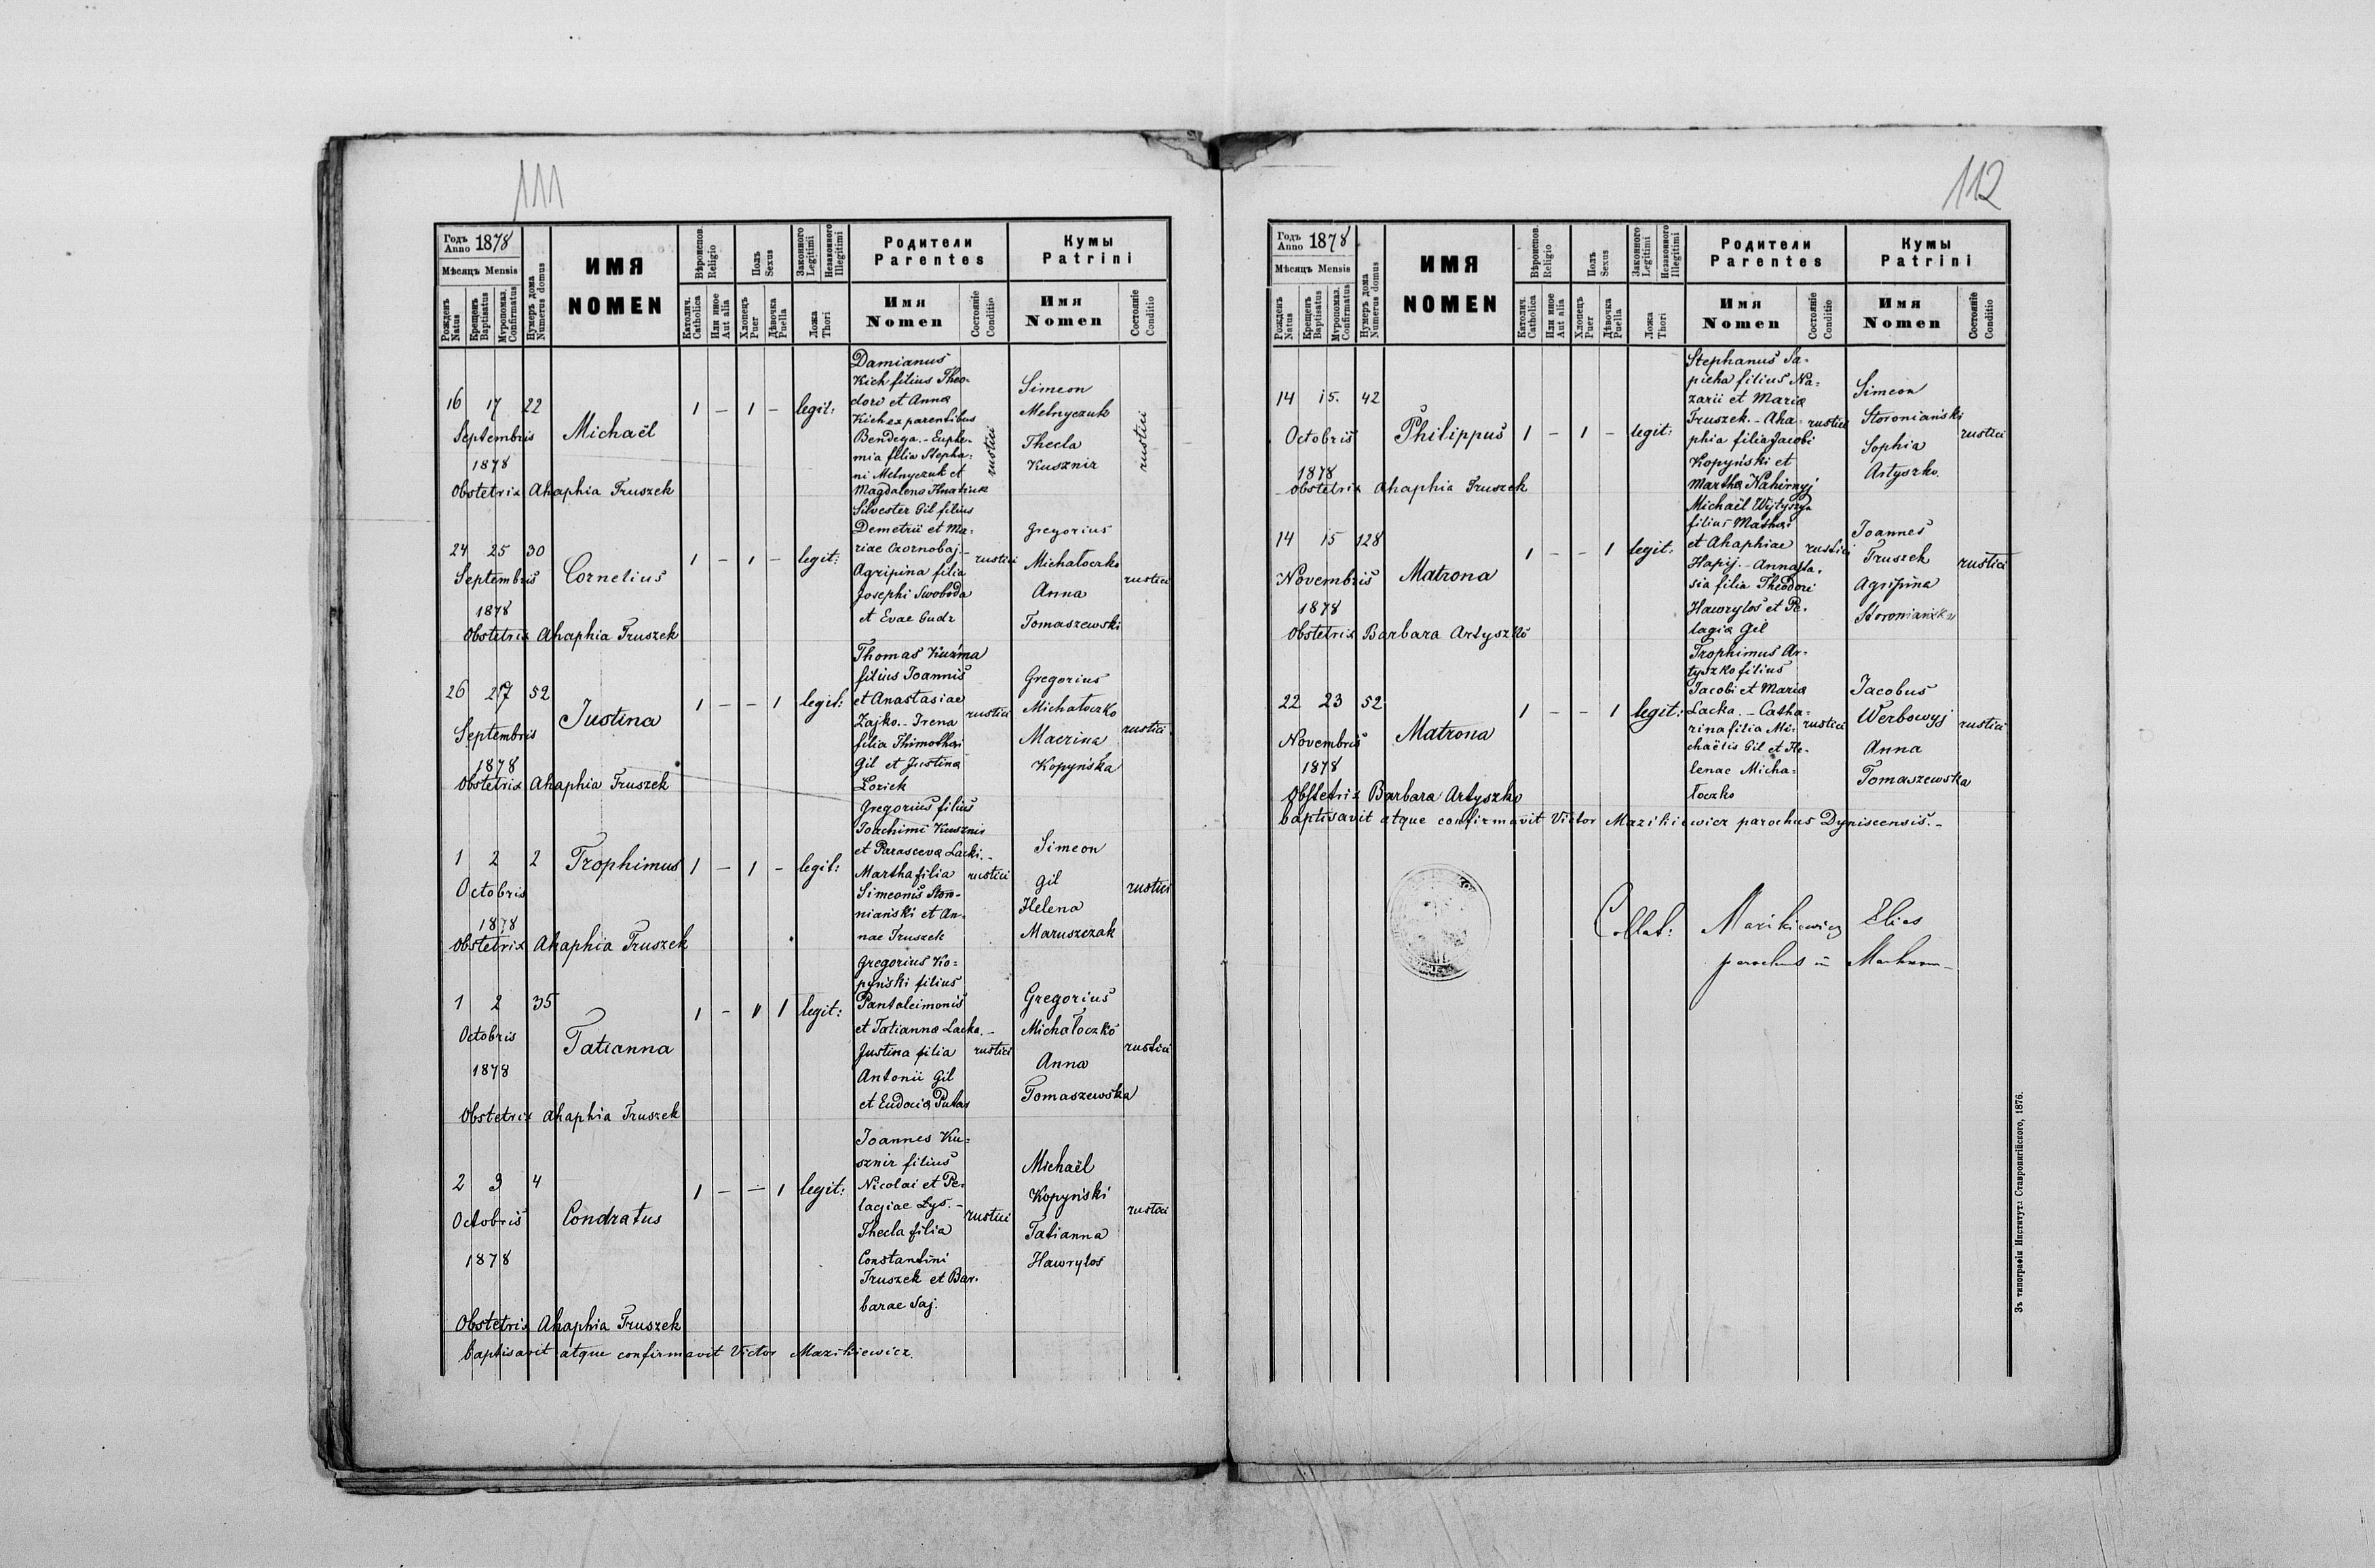 111
Годъ Anno 1878
Мѣсяцъ Mensis
Рожденъ Natus
Крещенъ Baptisatus
Мѵропомаз. Confirmatus
Нумеръ дома Numerus domus
ИМЯ
NOMEN
Вѣроиспов. Religio
Католич. Catholica
Или иное Aut alia
Полъ Sexus
Хлопецъ Puer
Дѣвочка Puella
Законного Legitimi
Незаконного Illegitimi
Ложа Thori
Родители
Parentes
Имя
Nomen
Состояніе Conditio
Кумы
Patrini
Имя
Nomen
Состояніе Conditio
16 17 22
Septembris
1878
Michaël
1 – 1 – legit:
Damianus
Kich filius Theo-
dori et Anna
Kich ex parentibus
Bendega. - Euphe-
mia filia Stepha-
ni Melnyczuk et
Magdalena Hnatiuk
rustici
Simeon
Melnyczuk
Thecla
Kusznir
rustici
Obstetrix Ahaphia Truszek
24 25 30
Septembris
1878
Cornelius
1 – 1 – legit:
Silvester Gil filius
Demetrii et Ma-
riae Czornobaj. -
Agripina filia
Josephi Swoboda
et Evae Gudz
rustici
Gregorius
Michałoczko
Anna
Tomaszewski
rustici
Obstetrix Ahaphia Truszek
26 27 52
Septembris
1878
Justina
1 – – 1 legit:
Thomas Kuzma
filius Joannis
et Anastasiae
Zajko. - Irena
filia Thimothei
Gil et Justina
Lozick
rustici
Gregorius
Michałoczko
Macrina
Kopyńska
rustici
Obstetrix Ahaphia Truszek
1 2 2
Octobris
1878
Trophimus
1 – 1 – legit:
Gregorius filius
Joachimi Kusznir
et Parasceva Lacki. -
Martha filia
Simeonis Storo-
niański et An-
nae Truszek
rustici
Simeon
Gil
Helena
Maruszczak
rustici
Obstetrix Ahaphia Truszek
1 2 35
Octobris
1878
Tatianna
1 – 1 1 legit:
Gregorius Ko-
pyński filius
Pantaleimonis
et Tatianna Lacka. -
Justina filia
Antonii Gil
et Eudocia Putas
rustici
Gregorius
Michałoczko
Anna
Tomaszewska
rustici
Obstetrix Ahaphia Truszek
2 3 4
Octobris
1878
Condratus
1 – – 1 legit:
Joannes Ku-
sznir filius
Nicolai et Pe-
lagiae Lys. -
Thecla filia
Constantini
Truszek et Bar-
barae Saj.
rustici
Michaël
Kopyński
Tatianna
Hawrylos
rustici
Obstetrix Ahaphia Truszek
baptisavit atque confirmavit Victor Mazikiewicz.
112
Годъ Anno 1878
Мѣсяцъ Mensis
Рожденъ Natus
Крещенъ Baptisatus
Мѵропомаз. Confirmatus
Нумеръ дома Numerus domus
ИМЯ
NOMEN
Вѣроиспов. Religio
Католич. Catholica
Или иное Aut alia
Полъ Sexus
Хлопецъ Puer
Дѣвочка Puella
Законного Legitimi
Незаконного Illegitimi
Ложа Thori
Родители
Parentes
Имя
Nomen
Состояніе Conditio
Кумы
Patrini
Имя
Nomen
Состояніе Conditio
14 15. 42
Octobris
1878
Philippus
1 – 1 – legit:
Stephanus Sa-
pieha filius Na-
zarii et Maria
Truszek. - Aha-
phia filia Jacobi
Kopyński et
Martha Nahirnyj
rustici
Simeon
Storoniański
Sophia
Artyszko.
rustici
Obstetrix Ahaphia Truszek
14 15 128
Novembris
1878
Matrona
1 – – 1 legit:
Michaël
filius
et Ahaphiae
Hapij. - Annasta-
sia filia Theodori
Hawrylos et Pe-
lagia Gil
rustici
Joannes
Truszek
Agripina
rustici
Obstetrix Barbara Artyszko
22 23 52
Novembris
1878
Matrona
1 – – 1 legit:
Trophimus Ar-
tyszko filius
Jacobi et Maria
Lacka. - Catha-
rina filia Mi-
chaëlis Gil et He-
lenae Micha-
łoczko
rustici
Jacobus
Werbowyj
Anna
Tomaszewska
rustici
Obstetrix Barbara Artyszko
baptisavit atque confirmavit Victor Mazikiewicz parochus Dyniscensis. -
Collat: Mazikiewicz Elias
parochus in
Зъ типографіи Института Ставропигійского, 1876.